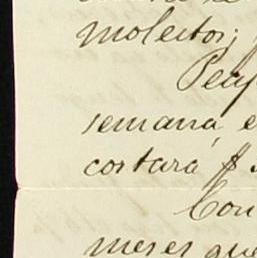 molestos;
semana, e
cortará $
Con
meses que